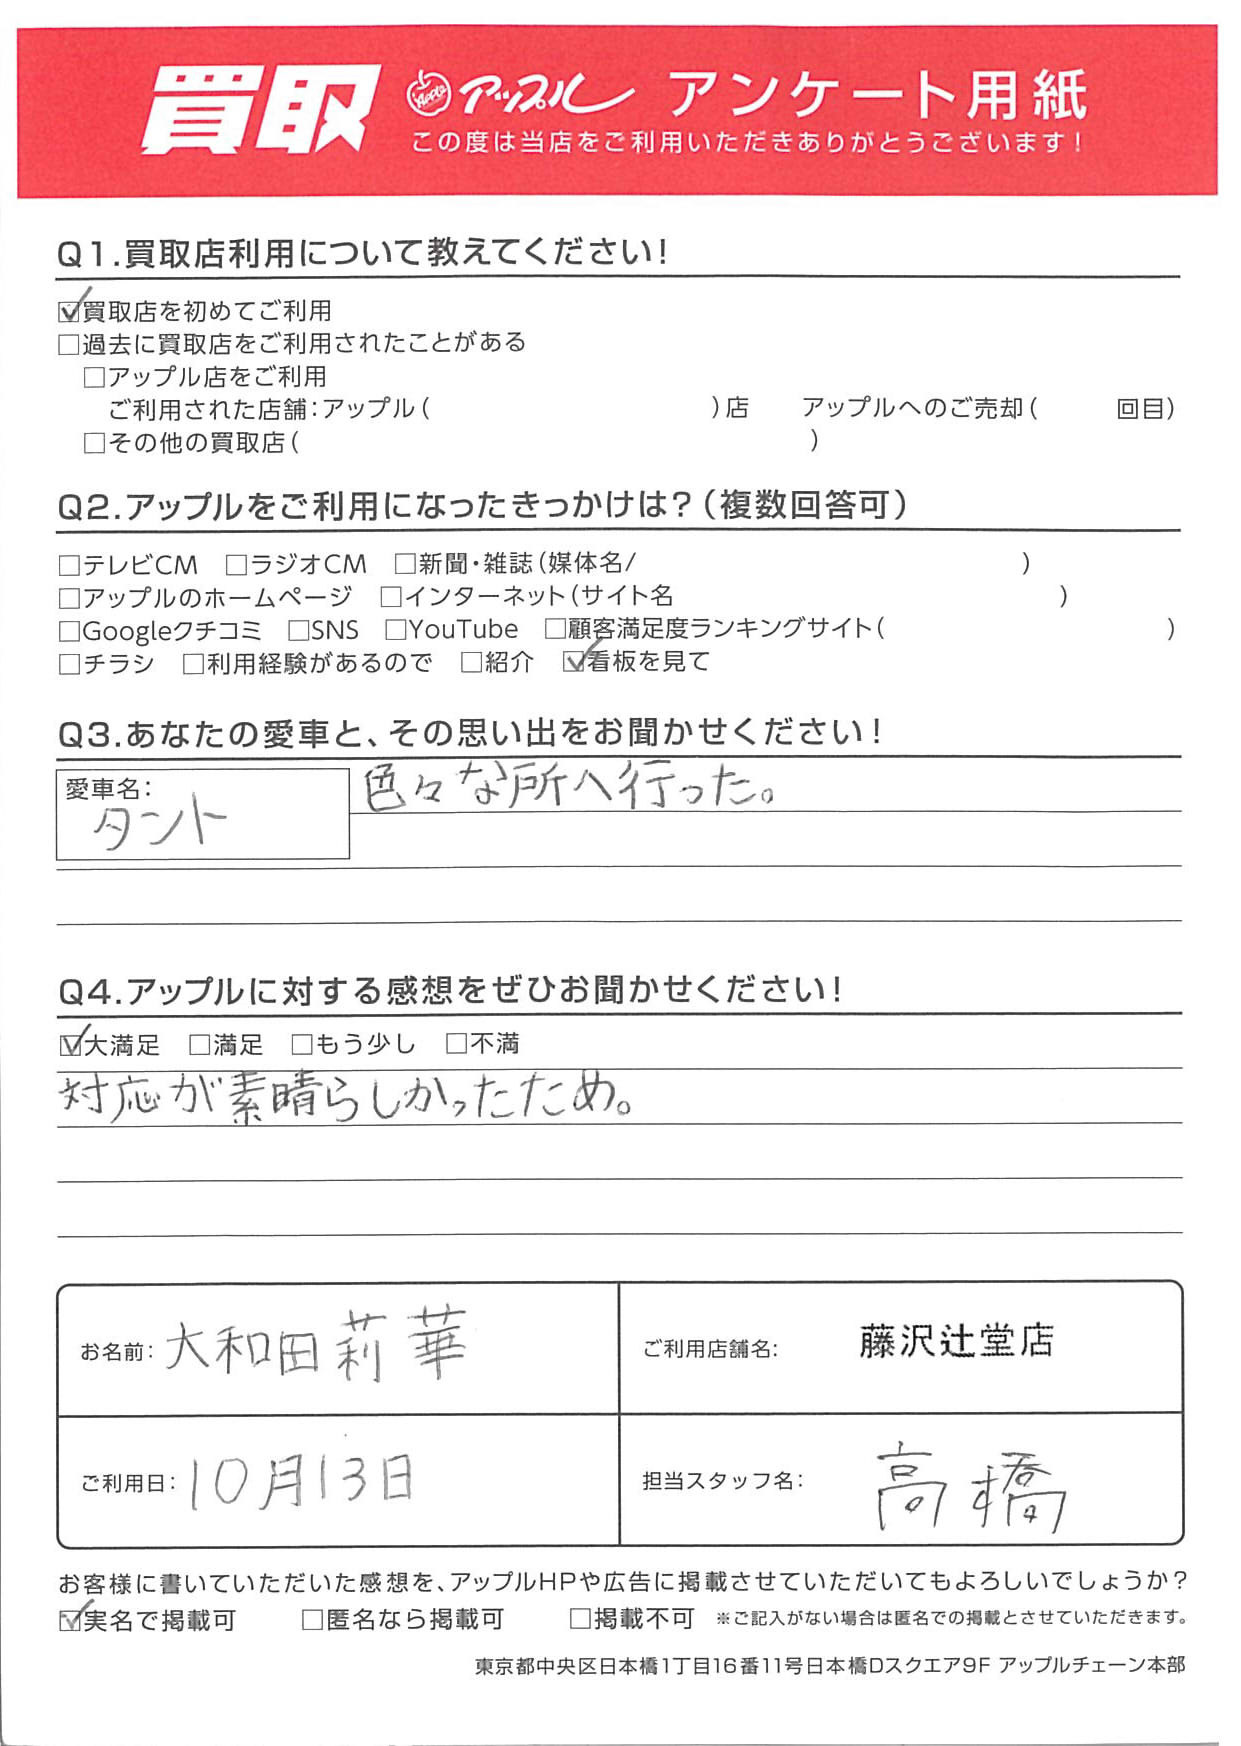 買取 Apple アップル アンケート用紙
この度は当店をご利用いただきありがとうございます!
Q1.買取店利用について教えてください!
☑買取店を初めてご利用
□過去に買取店をご利用されたことがある
□アップル店をご利用
ご利用された店舗:アップル( )店 アップルへのご売却( 回目)
□その他の買取店( )
Q2.アップルをご利用になったきっかけは?(複数回答可)
□テレビCM □ラジオCM □新聞・雑誌(媒体名/ )
□アップルのホームページ □インターネット(サイト名 )
□Googleクチコミ □SNS □YouTube □顧客満足度ランキングサイト( )
□チラシ □利用経験があるので □紹介 ☑看板を見て
Q3.あなたの愛車と、その思い出をお聞かせください!
愛車名:
タント
色々な所へ行った。
Q4.アップルに対する感想をぜひお聞かせください!
☑大満足 □満足 □もう少し □不満
対応が素晴らしかったため。
お名前: 大和田莉華
ご利用店舗名: 藤沢辻堂店
ご利用日: 10月13日
担当スタッフ名: 高橋
お客様に書いていただいた感想を、アップルHPや広告に掲載させていただいてもよろしいでしょうか?
☑実名で掲載可 □匿名なら掲載可 □掲載不可 ※ご記入がない場合は匿名での掲載とさせていただきます。
東京都中央区日本橋1丁目16番11号日本橋Dスクエア9F アップルチェーン本部